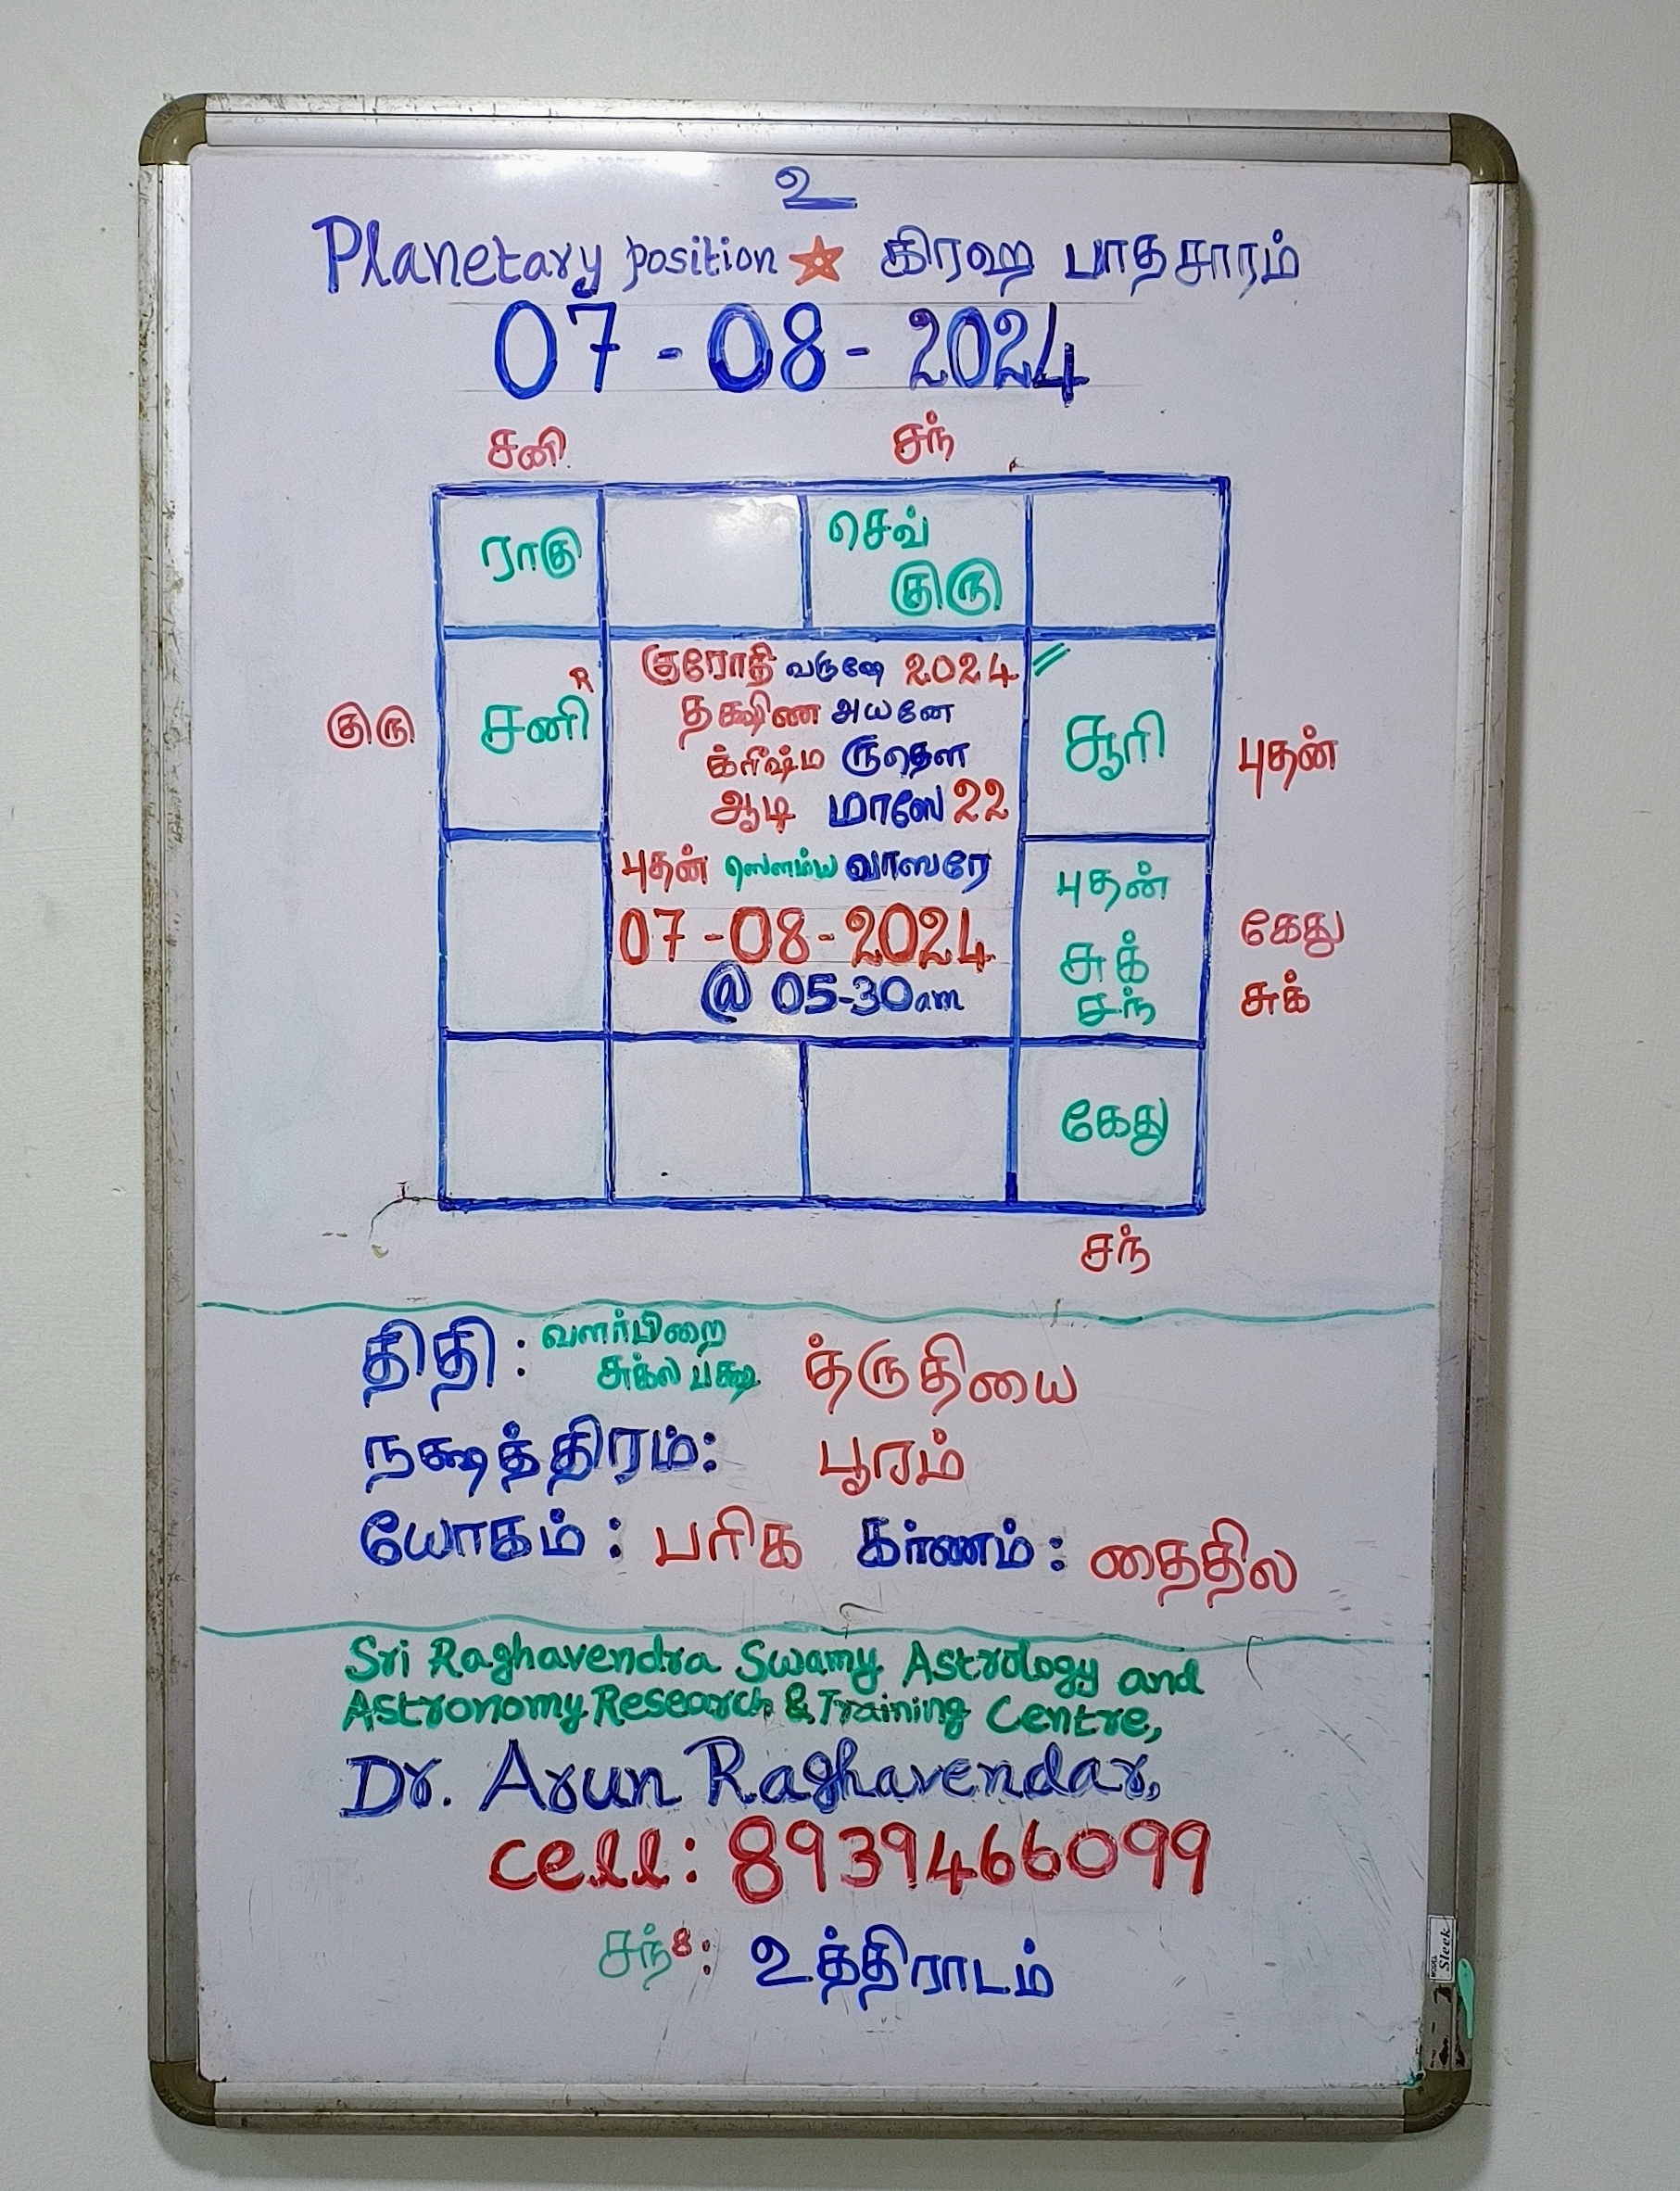 உ
Planetary position ☆ கிரஹ பாதசாரம்
07-08-2024
சனி சந்
ராகு செவ்
குரு
குரோதி வருஷே 2024
தக்ஷிண அயனே
சனி R சூரி
குரு க்ரீஷ்ம ருதௌ புதன்
ஆடி மாஸே 22
புதன் ஸௌம்ய வாஸரே புதன்
07-08-2024 சுக் கேது
@ 05-30am சந் சுக்
கேது
சந்
திதி: வளர்பிறை
சுக்ல பக்ஷ த்ருதியை
நக்ஷத்திரம்: பூரம்
யோகம்: பரிக கர்ணம்: தைதில
Sri Raghavendra Swamy Astrology and
Astronomy Research & Training Centre,
Dr. Arun Raghavendar,
cell: 8939466099
சந் 8: உத்திராடம்
Sleek